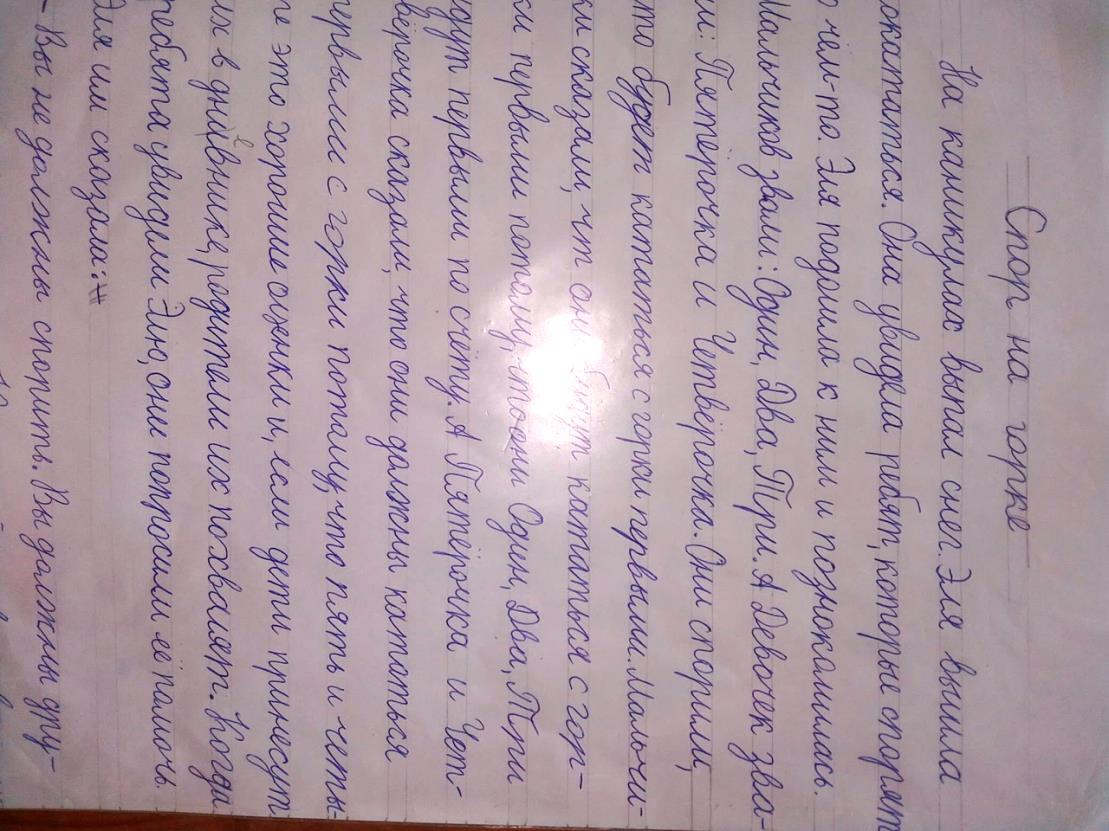 Спор на горке
На каникулах выпал снег. Эля вышла
покататься. Она увидела ребят, которые спорят
о чём-то. Эля подошла к ним и познокомилась.
Мальчиков звали: Один, Два, Три. А Девочек зва-
ли: Пятёрочка и Четвёрочка. Они спорили,
кто будет кататься с горки первыми. Мальчи-
ки сказали, что они будут кататься с гор-
ки первыми потому, что они Один, Два, Три
идут первыми по счёту. А Пятёрочка и Чет-
вёрочка сказали, что они должны кататься
первыми с горки потому, что пять и четы-
ре это хорошие оценки и, если дети принесут
их в дневнике, родители их похвалят. Когда
ребята увидели Элю, они попросили её помочь.
Эля им сказала:
- Вы не должны спорить. Вы должны дру-